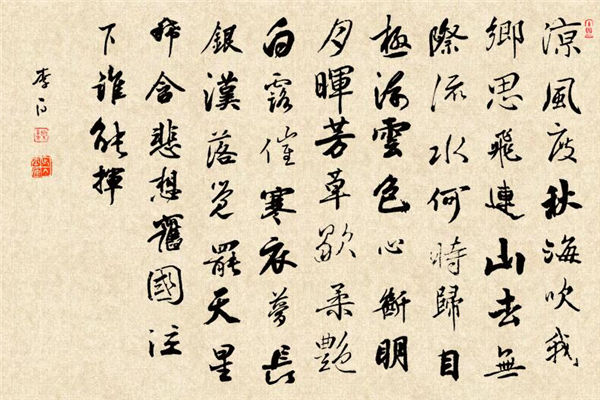 涼風度秋海吹我
鄉思飛連山去無
際流水何時歸目
極浮雲色心斷明
月暉芳草歇柔艷
白露催寒衣夢長
銀漢落覺罷天星
稀含悲想舊國泣
下誰能揮
李白